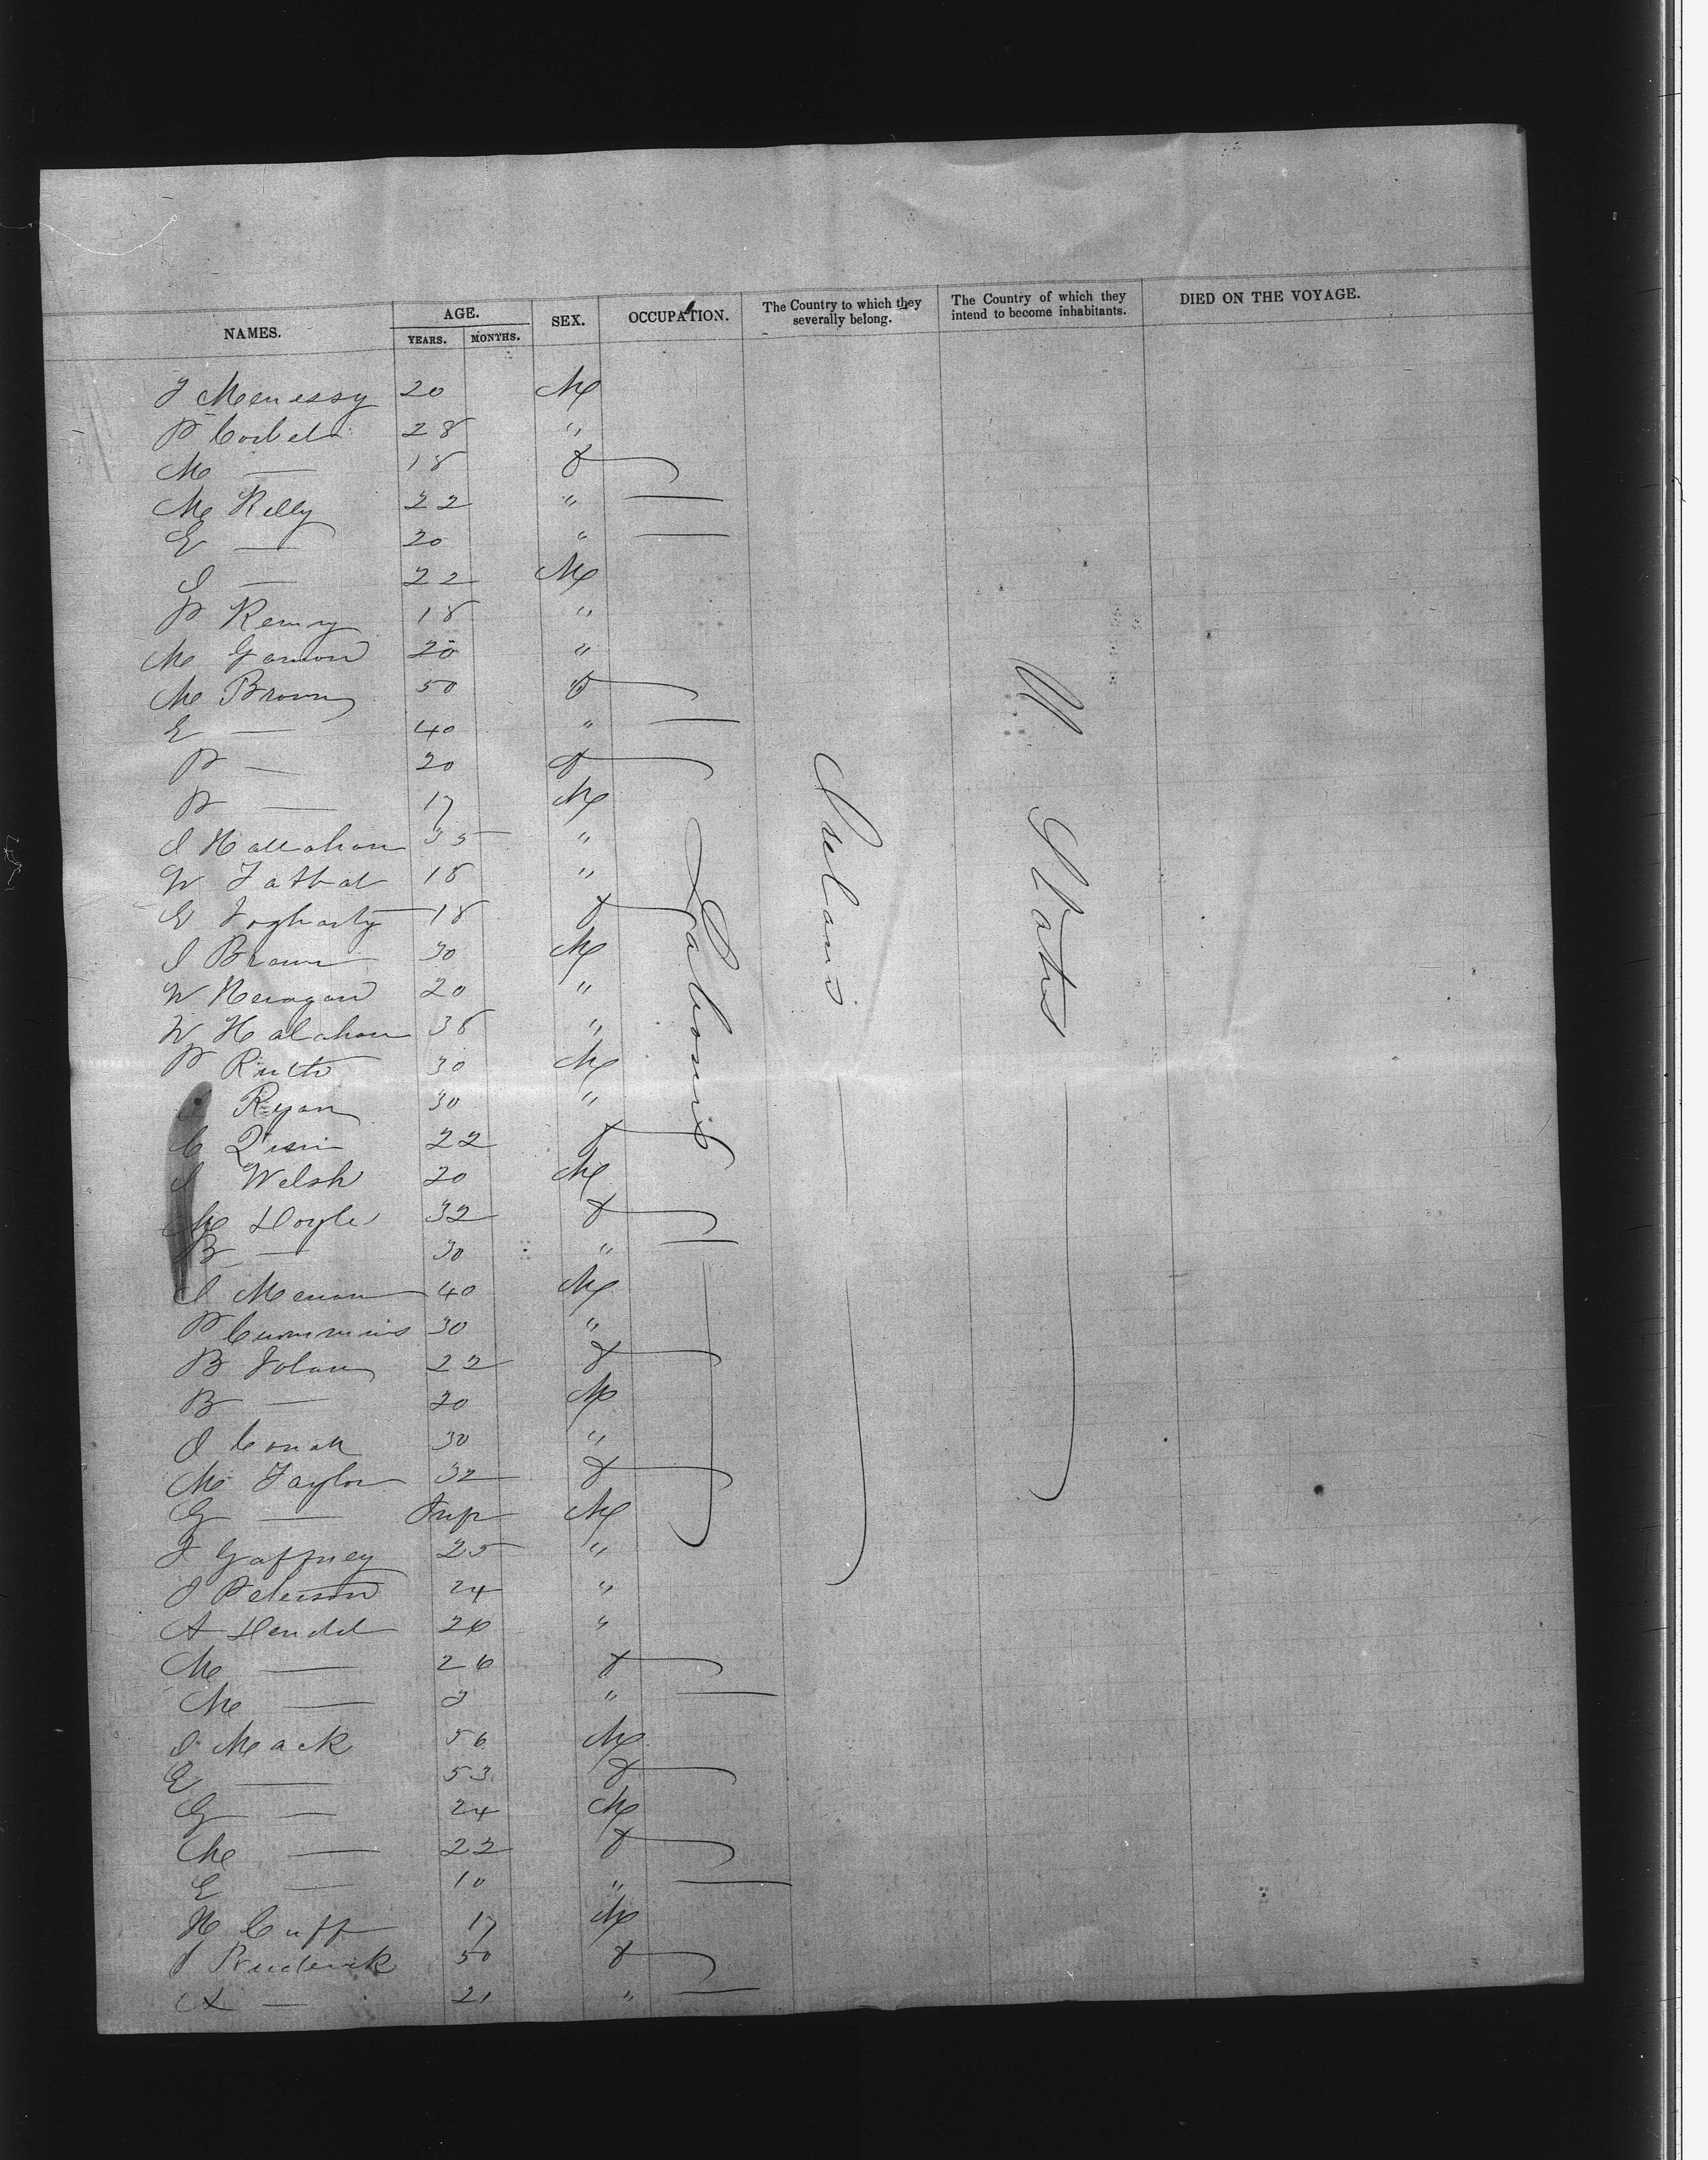 NAMES. AGE. YEARS. MONTHS. SEX. OCCUPATION. The Country to which they severally belong. The Country of which they intend to become inhabitants. DIED ON THE VOYAGE.
20 M
P Corbet 28 "
M — 18 F
M Kelly 22 " —
E — 20 " —
J — 22 M
P Kenny 18 "
M Gannon 20 "
M Brown 50 F
E — 40 " —
P — 20 F
P — 17 M
J Hallahan 35 "
W 18 "
E Fogharty 18 F
J Brown 30 M
W Keragan 20 "
W Halahan 38 "
P Ruth 30 M
J Ryan 30 "
C Quin 22 F
J Welsh 20 M
M Doyle 32 F
B — 30 " —
J 40 M
P Cummins 30 "
B Folan 22 F
B — 20 M
J 30 "
M Taylor 32 F
G — Inf M
J Gaffney 25 "
J Peterson 24 "
A 26 "
M — 26 F
M — " —
J Mack 56 M
E — 53 F
G — 24 M
M — 22 F
E — 10 " —
H Cuff 17 M
J Bruderick 50 F
A — 21 " —
Labourers
Ireland
U States